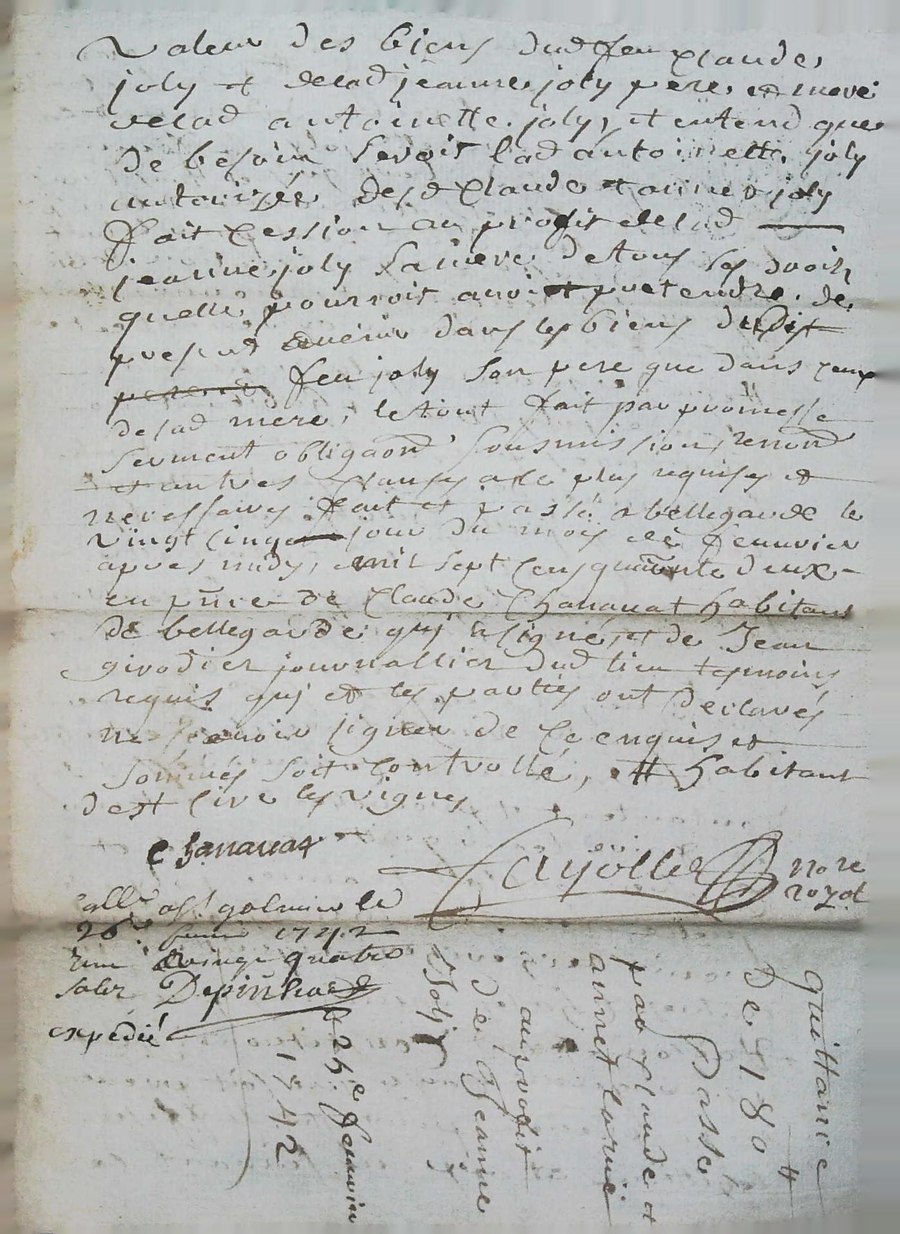 valeur des biens dud feu Claude
joly et delad jeanne joly pere et mere
delad antoinette joly, et entend que
de besoin seroit lad antoinette joly
autorisée desd Claude et annet joly
fait cession au profit delad
jeanne joly sa mere de tous les droits
quelle pourroit avoir et pretendre de
present avenir dans les biens dudit
feu joly son pere que dans ceux
delad mere, le tout fait par promesse
serment obligaon sousmission, renonč
et autres clauses a ce plus requises et
necessaires fait et passé a bellegarde le
vingt cinq jour du mois de feuvrier
apres midy, mil sept cens quarante deux
en pnce de Claude Chanavat habitant
de bellegarde qui a signé, et de Jean
girodier journallier dud lieu tesmoins
requis qui et les parties ont declarés
ne scavoir signer de ce enquis et
sommés soit controllé, # habitant
dest cire les vignes
Chanavat
Cayöller nore
royal
a st galmier le
26e 1742
vingt quatre
solz Depinhac
expédié
quittance
De 180 #
Passée
par Claude et
annet
au profit
de Jeanne
Joly
25e feuvrier
1742